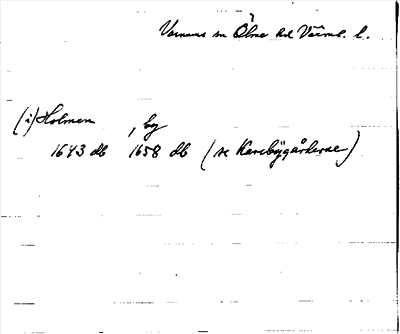 Varnums sn Ölme hd Värml. l.
(i) Holmen , by
1643 db 1658 db (se Karlbygårdarne)